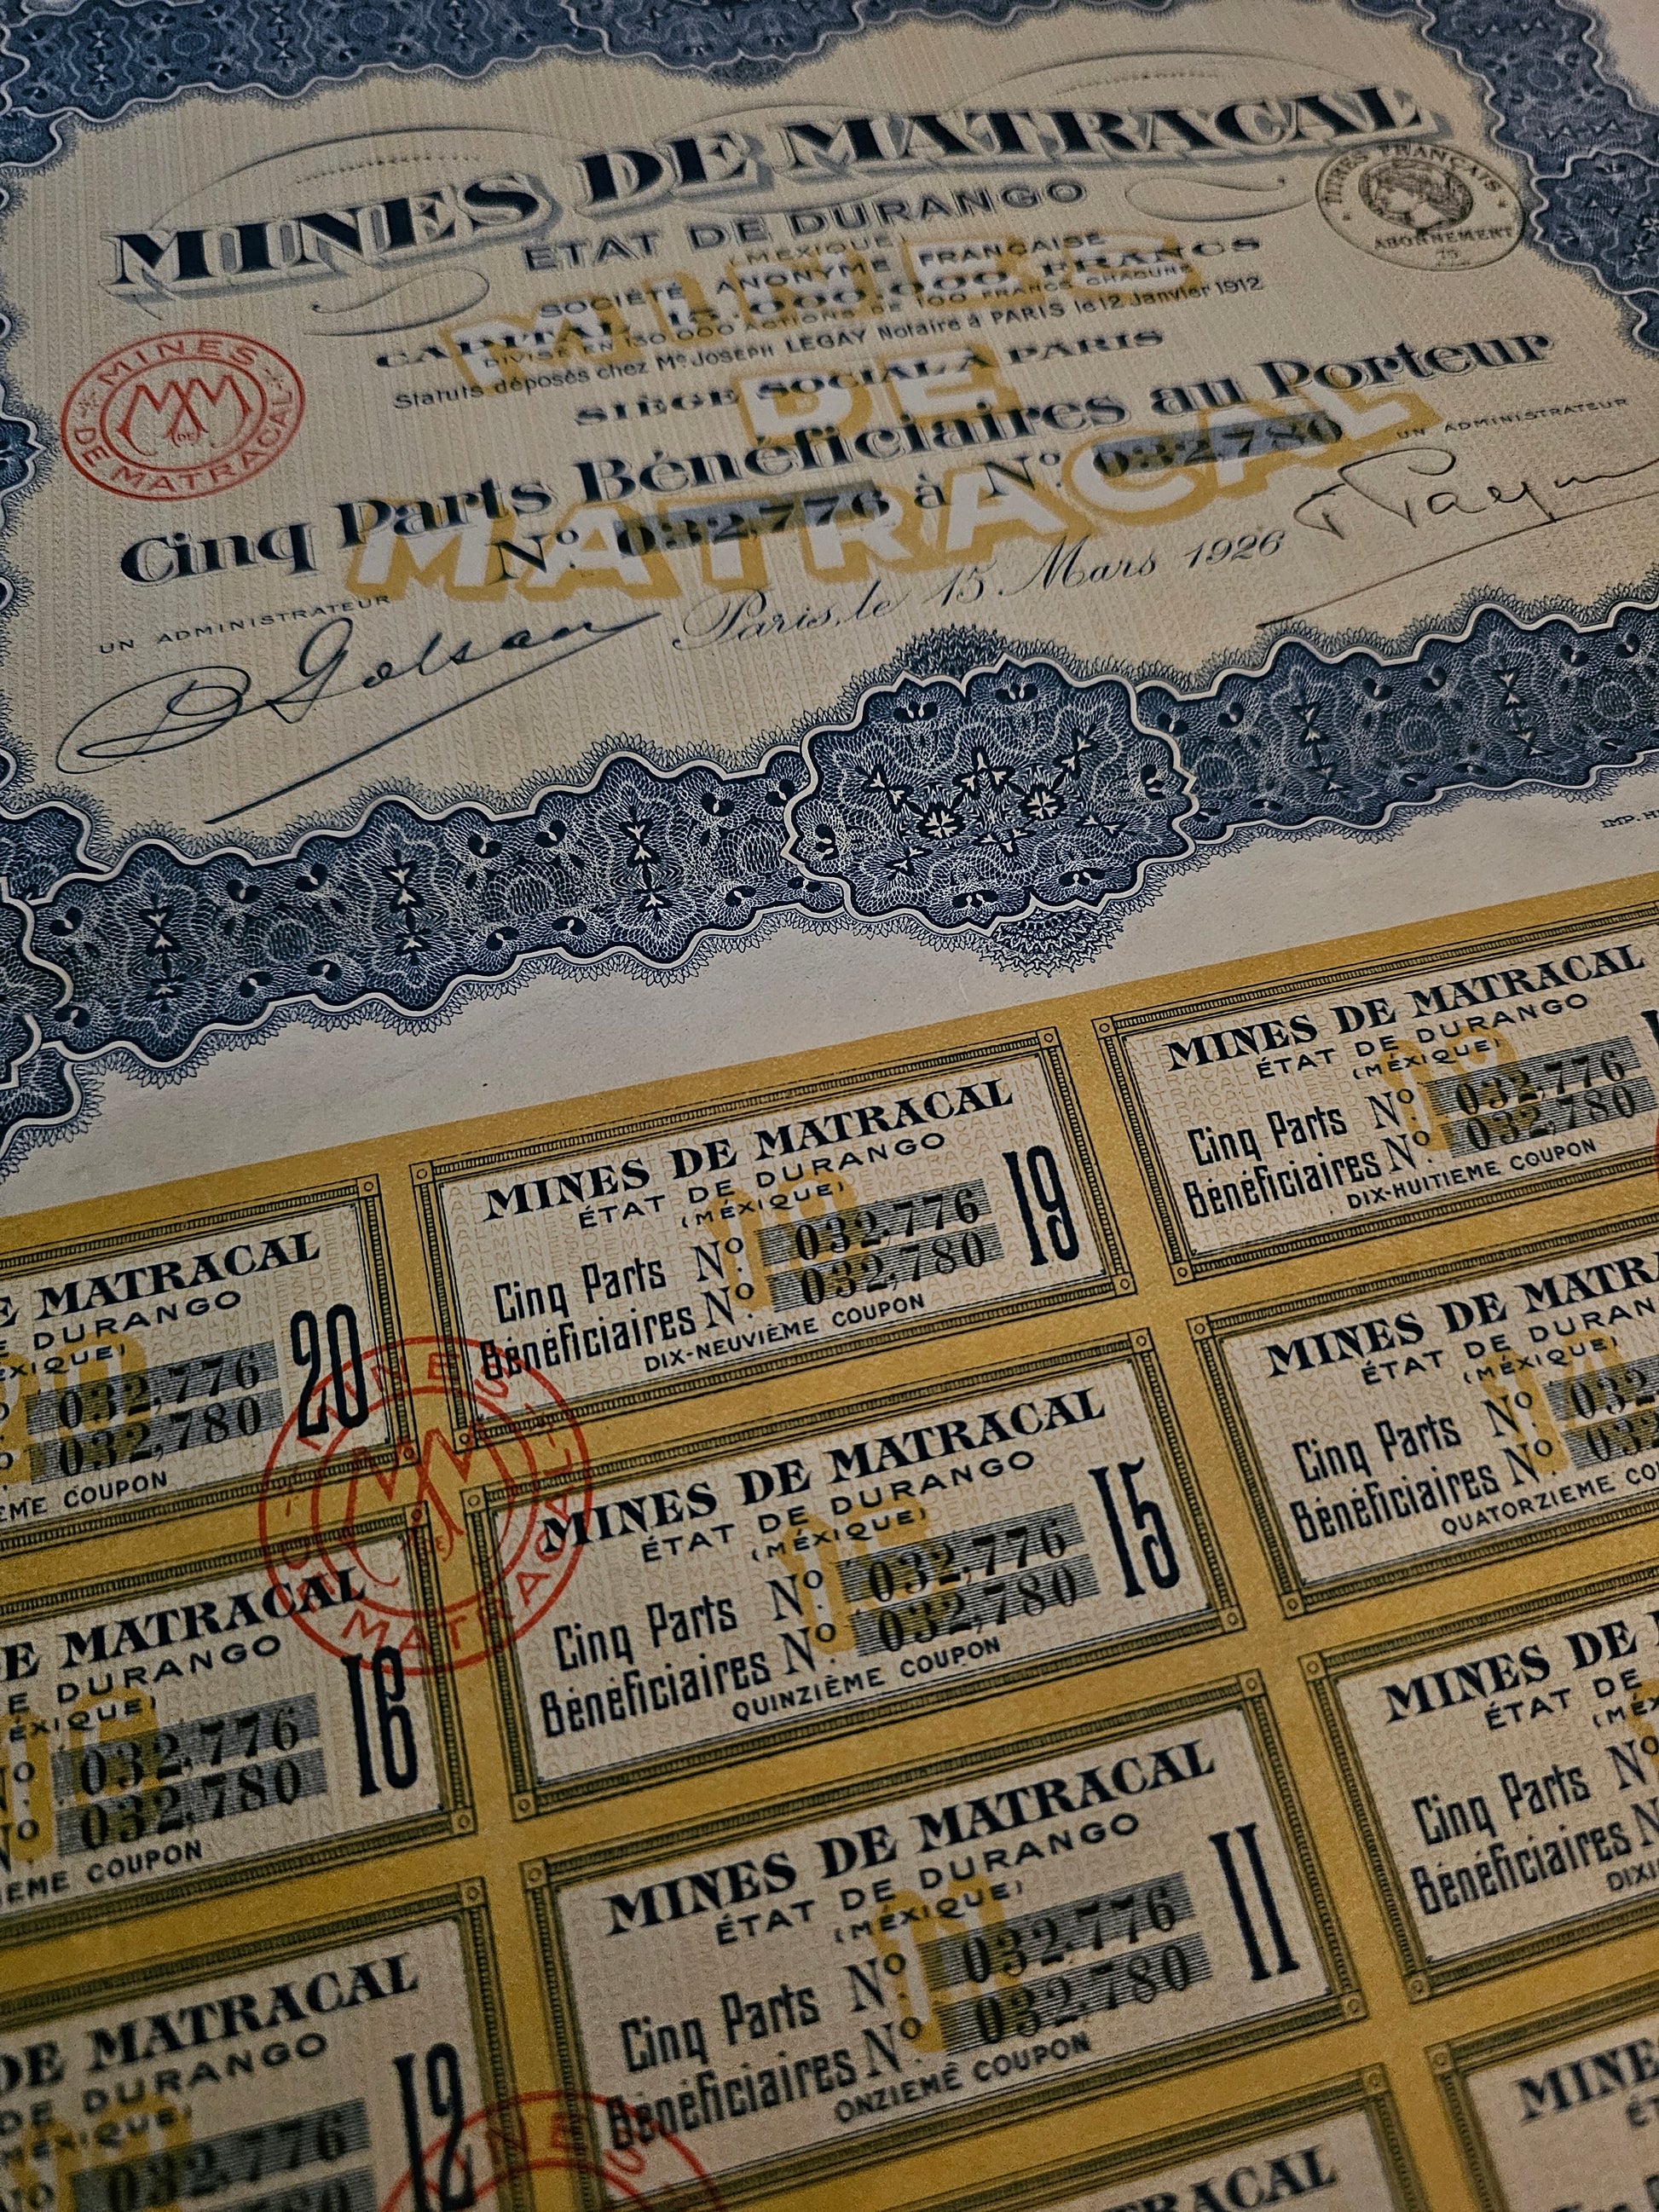 MINES DE MATRACAL
ÉTAT DE DURANGO
(MÉXIQUE)
SOCIÉTÉ ANONYME FRANÇAISE
CAPITAL 15.000.000 FRANCS
DIVISÉ EN 150.000 ACTIONS DE 100 FRANCS CHACUNE
Statuts déposés chez Me JOSEPH LEGAY Notaire à PARIS le 12 Janvier 1912
SIÈGE SOCIAL A PARIS
Cinq Parts Bénéficiaires au Porteur
No. 032,776 à No. 032,780
MINES
DE
MATRACAL
FRANÇAIS
ABONNEMENT
MINES
DE
DE MATRACAL
UN ADMINISTRATEUR
UN ADMINISTRATEUR
Paris, le 15 Mars 1926
IMP.
MINES DE MATRACAL
ÉTAT DE DURANGO
(MÉXIQUE)
Cinq Parts No. 032,776
Bénéficiaires No. 032,780
DIX-HUITIÈME COUPON
MINES DE MATRACAL
ÉTAT DE DURANGO
(MÉXIQUE)
Cinq Parts No. 032,776
Bénéficiaires No. 032,780
19
DIX-NEUVIÈME COUPON
MATRACAL
DURANGO
032,776
032,780
20
COUPON
MINES
MATRACAL
MINES DE
ÉTAT DE
(MÉXIQUE)
Cinq Parts No.
Bénéficiaires No.
QUATORZIÈME
MINES DE MATRACAL
ÉTAT DE DURANGO
(MÉXIQUE)
Cinq Parts No. 032,776
Bénéficiaires No. 032,780
15
QUINZIÈME COUPON
DE MATRACAL
DE DURANGO
032,776
032,780
16
COUPON
MINES DE
ÉTAT DE
Cinq Parts No.
Bénéficiaires
MINES DE MATRACAL
ÉTAT DE DURANGO
(MÉXIQUE)
Cinq Parts No. 032,776
Bénéficiaires No. 032,780
11
ONZIÈME COUPON
DE MATRACAL
DE DURANGO
(MÉXIQUE)
032,776
12
MINES